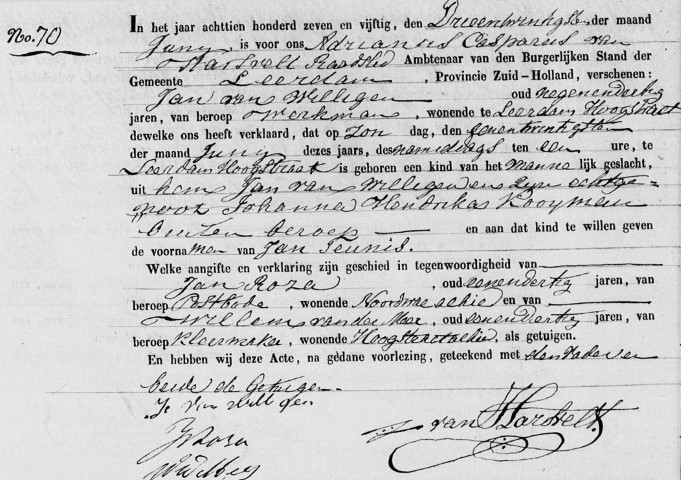 No. 70
In het jaar achttien honderd zeven en vijftig, den Drieentwintigsten der maand
Juny is voor ons Adrianus Casparus van
Ambtenaar van den Burgerlijken Stand der
Gemeente Leerdam, Provincie Zuid-Holland, verschenen:
Jan van Willigen oud negenendertig
jaren, van beroep Werkman, wonende te Leerdam Hoogstraat
dewelke ons heeft verklaard, dat op Zon dag, den eenentwintigsten
der maand Juny dezes jaars, des namiddags ten een ure, te
Leerdam Hoogstraat is geboren een kind van het manne lijk geslacht,
uit hem Jan van Willigen en zyne echtge=
noot Johanna Hendrika Kooyman
buiten beroep en aan dat kind te willen geven
de voornamen van Jan Teunis.
Welke aangifte en verklaring zijn geschied in tegenwoordigheid van
Jan Roza, oud eenendertig jaren, van
beroep Postbode, wonende en van
Willem van der Mee, oud eenendertig jaren, van
beroep Kleermaker, wonende, als getuigen.
En hebben wij deze Acte, na gedane voorlezing, geteekend met den Vader en
beide de Getuigen.
J. van Willigen
J Roza
van Hardvelt